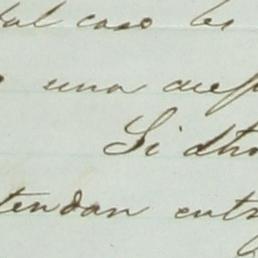 tal caso les
una
Si dho
tendan entr